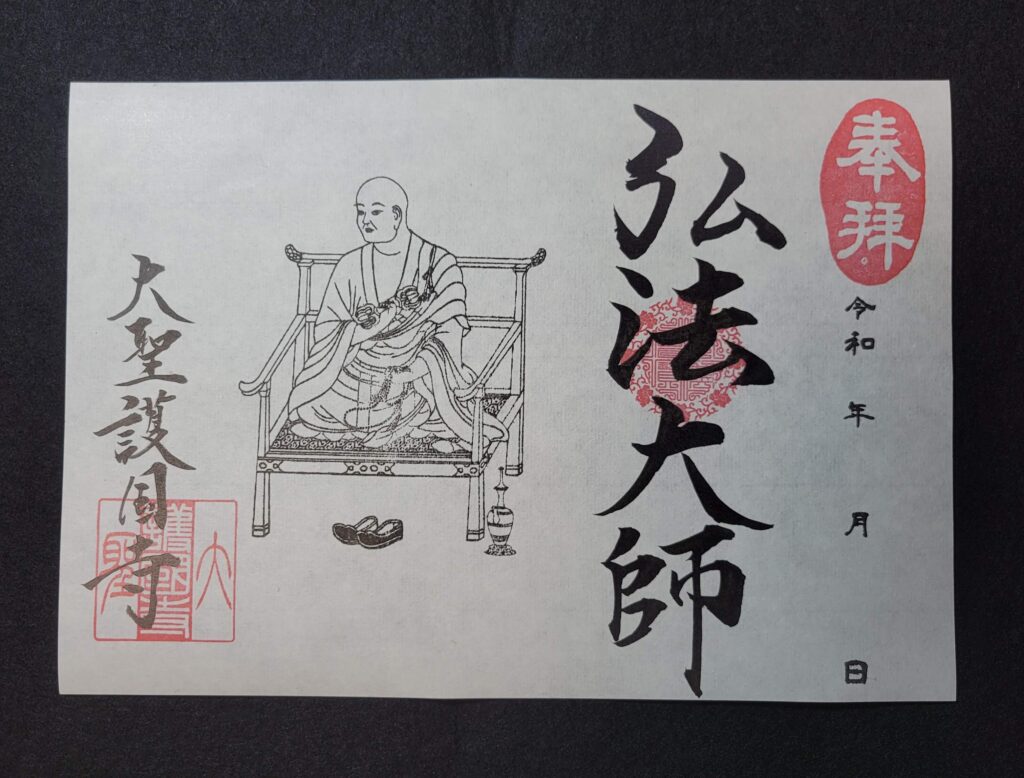 奉拝
令和 年 月 日
弘法大師
大聖護国寺
大聖護國寺